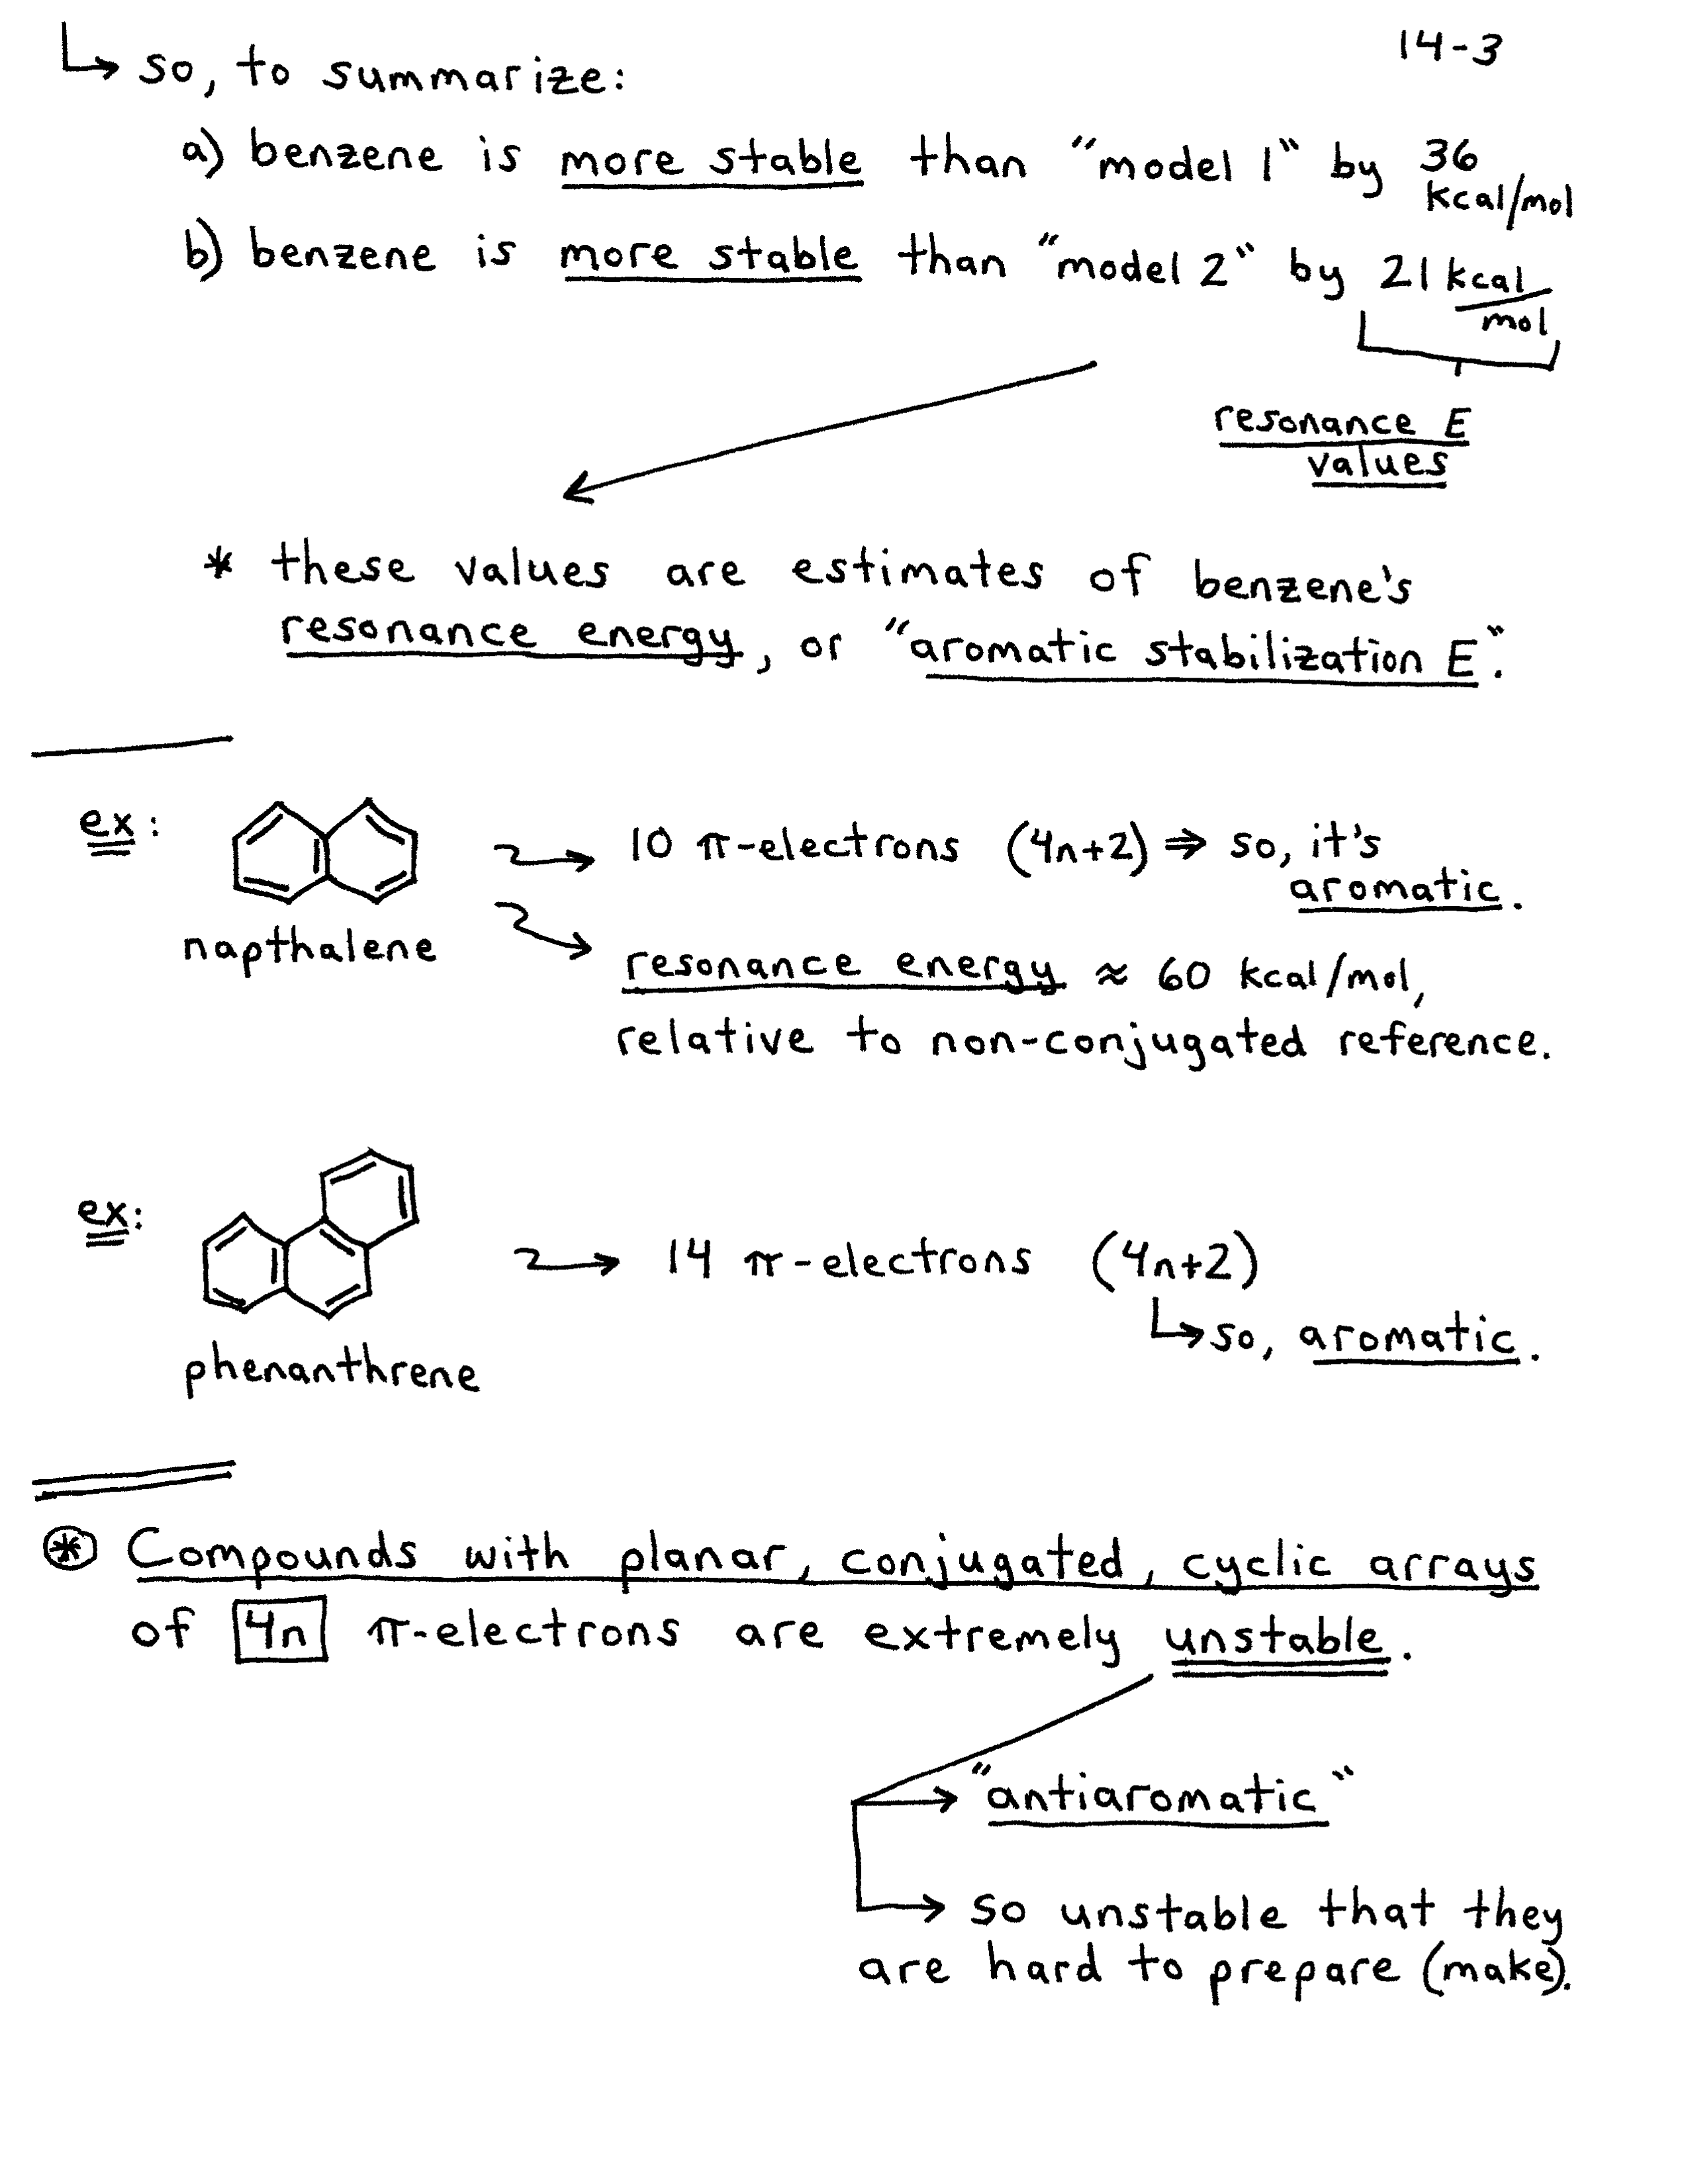 14-3
↳ so, to summarize:
a) benzene is more stable than "model 1" by 36 kcal/mol
b) benzene is more stable than "model 2" by 21 kcal/mol
resonance E
values
* these values are estimates of benzene's
resonance energy, or "aromatic stabilization E".
ex: → 10 π-electrons (4n+2) ⇒ so, it's
aromatic.
napthalene
→ resonance energy ≈ 60 kcal/mol,
relative to non-conjugated reference.
ex: → 14 π-electrons (4n+2)
↳ so, aromatic.
phenanthrene
⊛ Compounds with planar, conjugated, cyclic arrays
of 4n π-electrons are extremely unstable.
→ "antiaromatic"
→ so unstable that they
are hard to prepare (make).